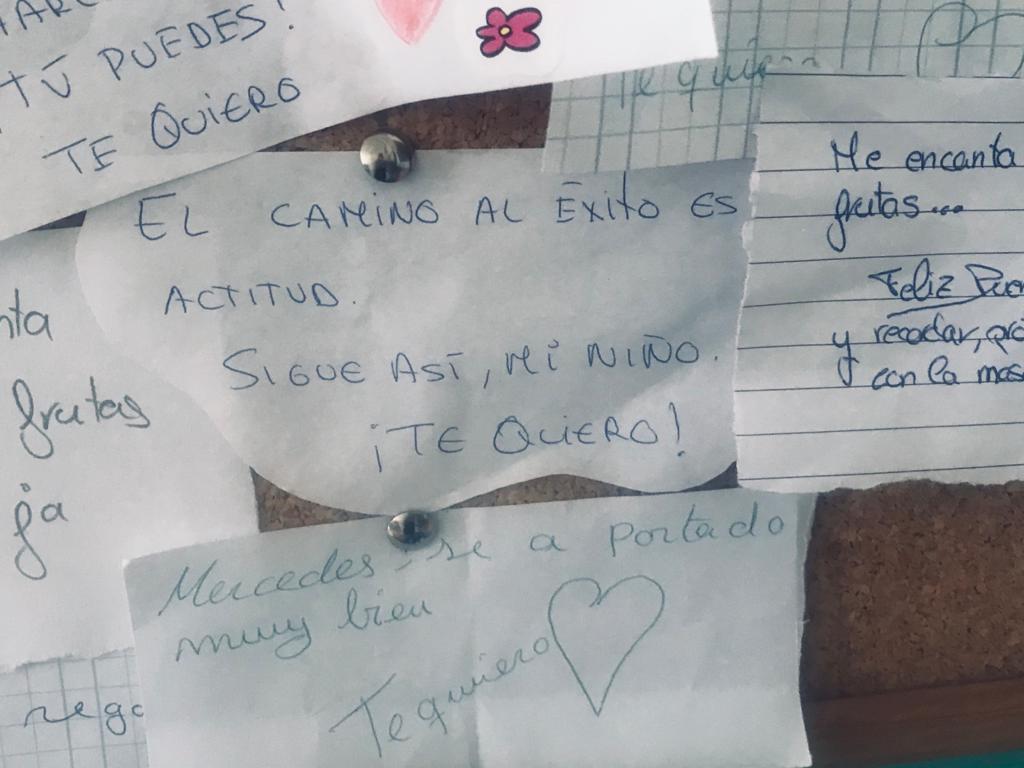 TÚ PUEDES!
TE QUIERO
Te
EL CAMINO AL ÉXITO ES
ACTITUD.
SIGUE ASÍ, MI NIÑO.
¡TE QUIERO!
Me encanta
frutas...
Feliz
y recodar,
con la
frutas
ja
Mercedes, se a portado
muy bien
Te quiero